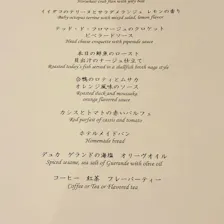 イイダコのドリーヌとサラダメランジェ レモンの香り
with mixed salad, lemon flavor
テッド・ド・フロマージュのクロケット
ピペラードソース
Head cheese croquette with piperade sauce
本日の鮮魚のロースト
甲羅汁のナージュ仕立て
Roasted today's fish arranged to a shellfish broth nage style
合鴨のロティとムサカ
オレンジ風味のソース
Roasted duck and moussaka,
orange flavored sauce
カシスとトマトの赤いパルフェ
Red parfait of cassis and tomato
ホテルメイドパン
Homemade bread
デュカ ゲランドの海塩 オリーヴオイル
Spiced sesame, sea salt of Guérande with olive oil
コーヒー 紅茶 フレーバーティー
Coffee or Tea or Flavored tea